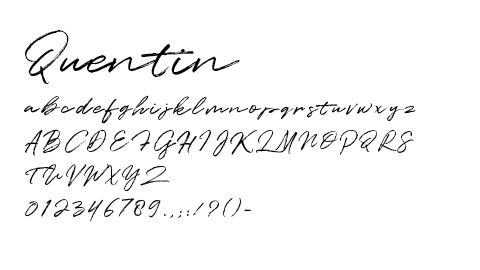 Quentin
abcdefghijklmnopqrstuvwxyz
ABCDEFGHIJKLMNOPQRS
TUVWXYZ
0123456789.,;:!?()-